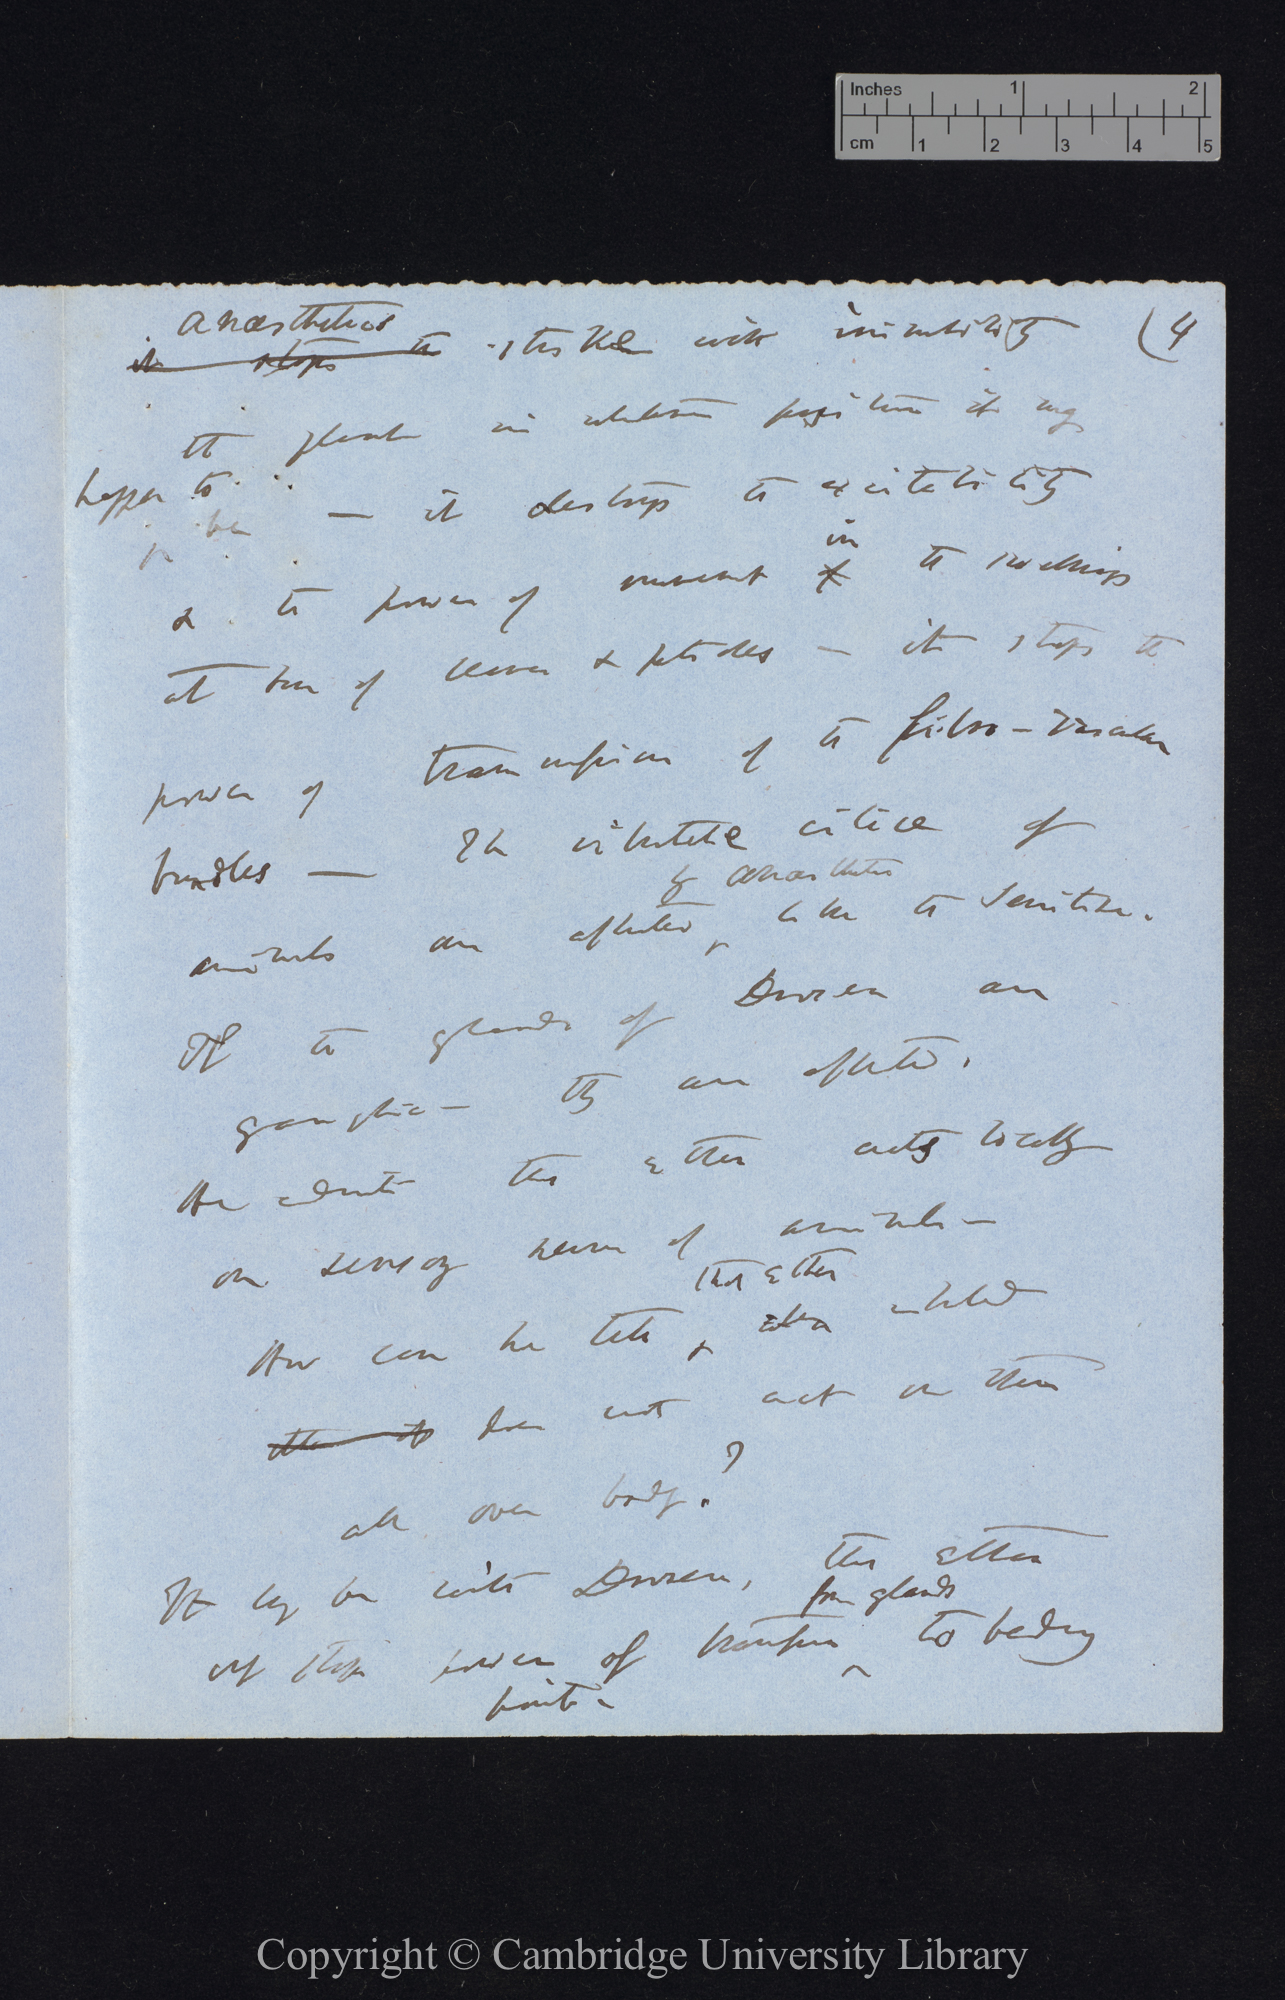 Inches 1 2
cm 1 2 3 4 5
(4
anæsthetics
it stops the strike with immobility
the plant in whatever position it may
happen to
be — it destroys the excitability
in
& the power of movement & the swellings
at base of leaves & petioles — it stops the
power of transmission of the fibro-vascular
bundles — The vibratile cilice of
by anæsthetics
animals are affected, like the Sensitive.
If the glands of Drosera are
ganglia — they are affected.
He admits that ether acts locally
on sensory nerves of animals —
that ether
How can he tell inhaled
does not act on them
all over body.?
It may be with Drosera, that ether
from glands
only stops power of transfer to bending
point —
Copyright © Cambridge University Library